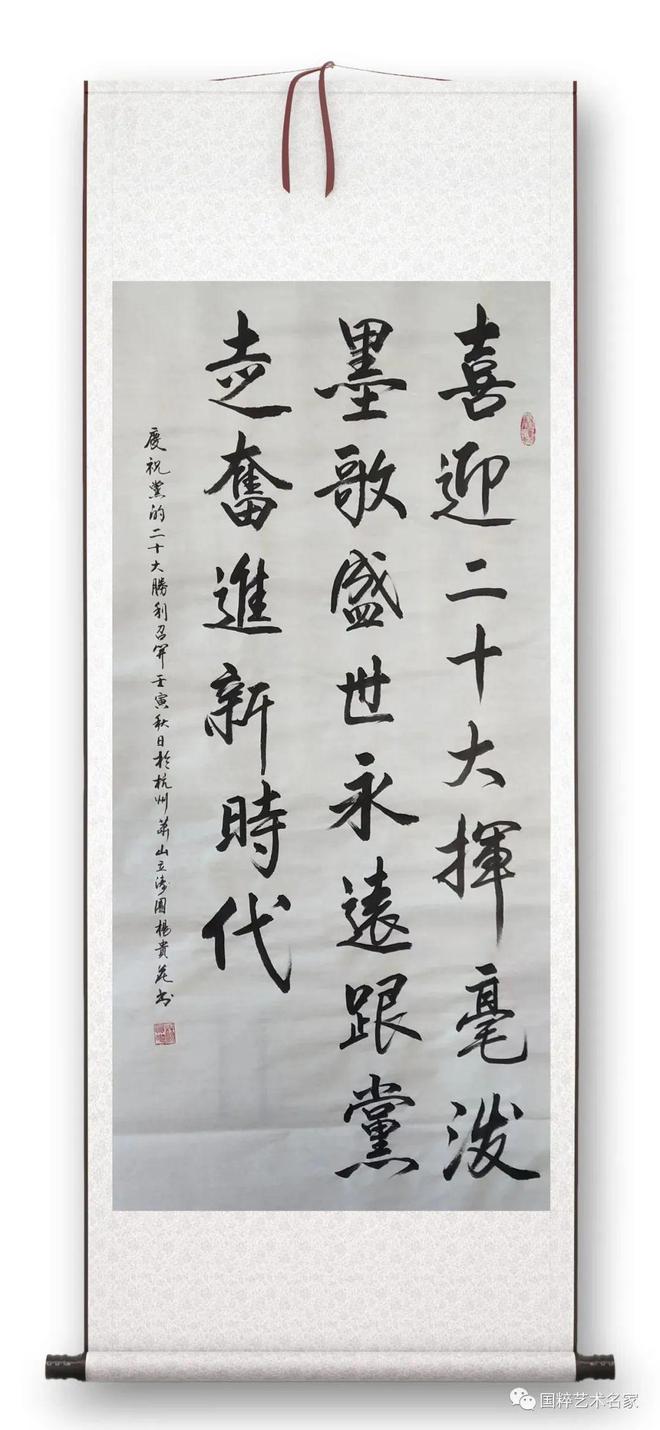 喜迎二十大揮毫潑
墨歌盛世永遠跟黨
走奮進新時代
慶祝黨的二十大勝利召開壬寅秋日於杭州蕭山立濤園楊貴花书
国粹艺术名家